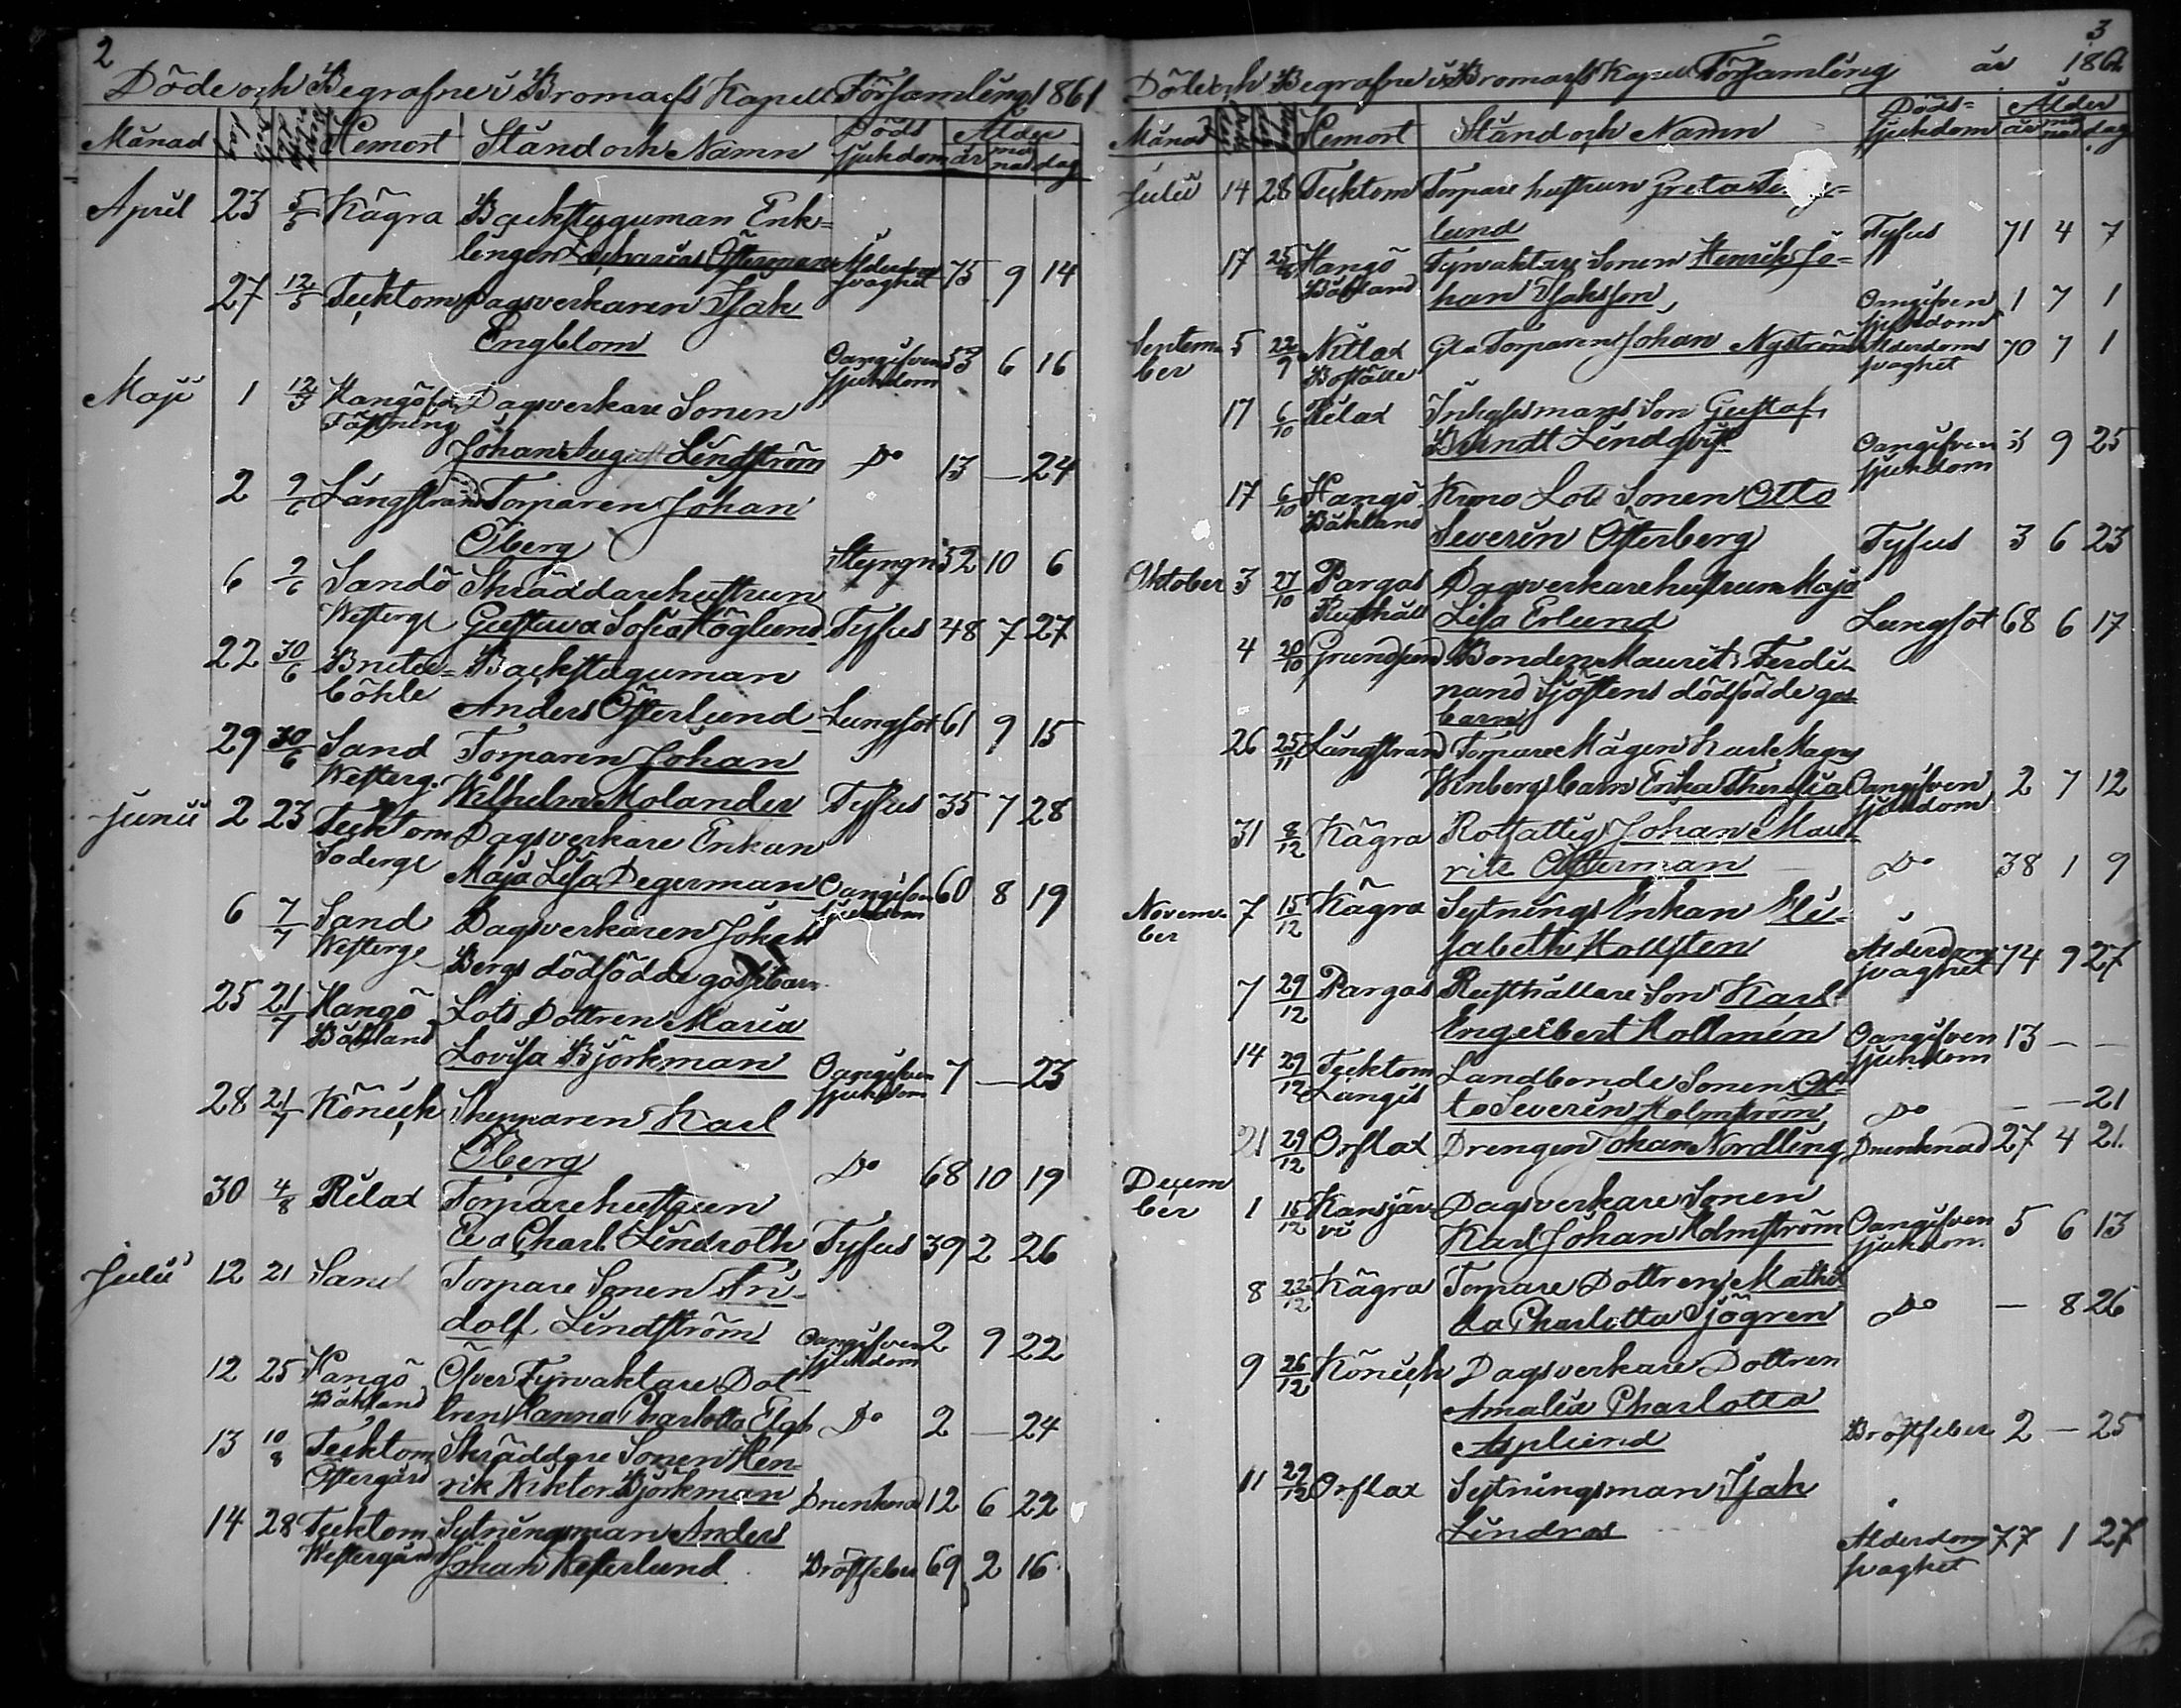 2
Döde och Begrafne i Bromarfs Kapell Församling 1861
Månad Hemort Stånd och Namn Döds sjukdom Ålder år månad dag
April 23 5/5 Kågra Backstuguman Enk-
lingen Zacharias Österman Ålderdoms svaghet 75 9 14
27 12/5 Tecktom Dagsverkaren Isak
Engblom Oangifven sjukdom 53 6 16
Maji 1 12/5 Hangö Fästning Dagsverkare Sonen
Johan August Lindström Do 13 — 24
2 2/6 Långstrand Torparen Johan
Öberg Styngn 52 10 6
6 2/6 Sandö Westergd Skräddarehustrun
Gustava Sofia Höglund Tyfus 48 7 27
22 30/6 Brite-böhle Backstuguman
Anders Österlund Lungsot 61 9 15
29 30/6 Sand Westerg. Torparen Johan
Wilhelm Molander Tyfus 35 7 28
Junii 2 23 Tecktom Södergd Dagsverkare Enkan
Maja Lisa Degerman Oangifven sjukdom 60 8 19
6 7/7 Sand Westergd Dagsverkaren Johan
Bergs dödfödda gossebarn
25 21/7 Hangö Båkland Lots Dottren Maria
Lovisa Björkman Oangifven sjukdom 7 — 23
28 21/7 Köneck Skepparen Karl
Öberg Do 68 10 19
30 4/8 Rilax Torparehustrun
Eva Charl. Lindroth Tyfus 39 2 26
Julii 12 21 Sand Torpare Sonen Fri-
dolf Lindström Oangifven sjukdom 2 9 22
12 25 Hangö Båkland Öfver Fyrvaktare Dot-
tren Hanna Charlotta Elgh Do 2 — 24
13 10/8 Tecktom Östergård Skräddare Sonen Hen-
rik Wiktor Björkman Drunknad 12 6 22
14 28 Tecktom Westergård Sytningsman Anders
Johan Westerlund Bröstfeber 69 2 16
3
Döde och Begrafne i Bromarfs Kapell Församling år 1861
Månad Hemort Stånd och Namn Döds-sjukdom Ålder år månad dag
Julii 14 28 Tecktom Torpare hustrun Greta
lund Tyfus 71 4 7
17 25/8 Hangö Båkland Fyrvaktare Sonen Henrik Jo-
han Isaksson Oangifven sjukdom 1 7 1
Septem-ber 5 22/9 Nitlax Boställe Gla Torparen Johan Nyström Ålderdoms svaghet 70 7 1
17 6/10 Rilax Inhysesmans Son Gustaf
Berndt Lindqvist Oangifven sjukdom 3 9 25
17 6/10 Hangö Båkland Krono Lots Sonen Otto
Severin Österberg Tyfus 3 6 23
Oktober 3 27/10 Pargas Rusthåll Dagsverkarehustrun Maja
Lisa Erlund Lungsot 68 6 17
4 20/10 Grundsund Bonden Maurits Ferdi-
nand Sjöstens dödfödde gosse-
barn
26 25/11 Långstrand Torpare Mågen Karl Magnus
Winbergs barn Erika Theresia Oangifven sjukdom 2 7 12
31 8/12 Kågra Rotfattig Johan Mau-
ritz Österman Do 38 1 9
Novem-ber 7 15/12 Kågra Sytnings Enkan Eli-
sabeth Hollsten Ålderdoms svaghet 74 9 27
7 29/12 Pargas Rusthållare Son Karl
Engelbert Hollmén Oangifven sjukdom 13 — —
14 29/12 Tecktom Långis Landbonde Sonen Ot-
to Severin Holmström Do — — 21
21 29/12 Orslax Drengen Johan Nordling Drunknad 27 4 21
Decem-ber 1 15/12 Kansjärvi Dagsverkare Sonen
Karl Johan Holmström Oangifven sjukdom 5 6 13
8 22/12 Kågra Torpare Dottren Mathil-
da Charlotta Sjögren Do — 8 26
9 26/12 Köneck Dagsverkare Dottren
Amalia Charlotta
Asplund Bröstfeber 2 — 25
11 29/12 Orslax Sytningsman Isak
Lindros Ålderdoms svaghet 77 1 27